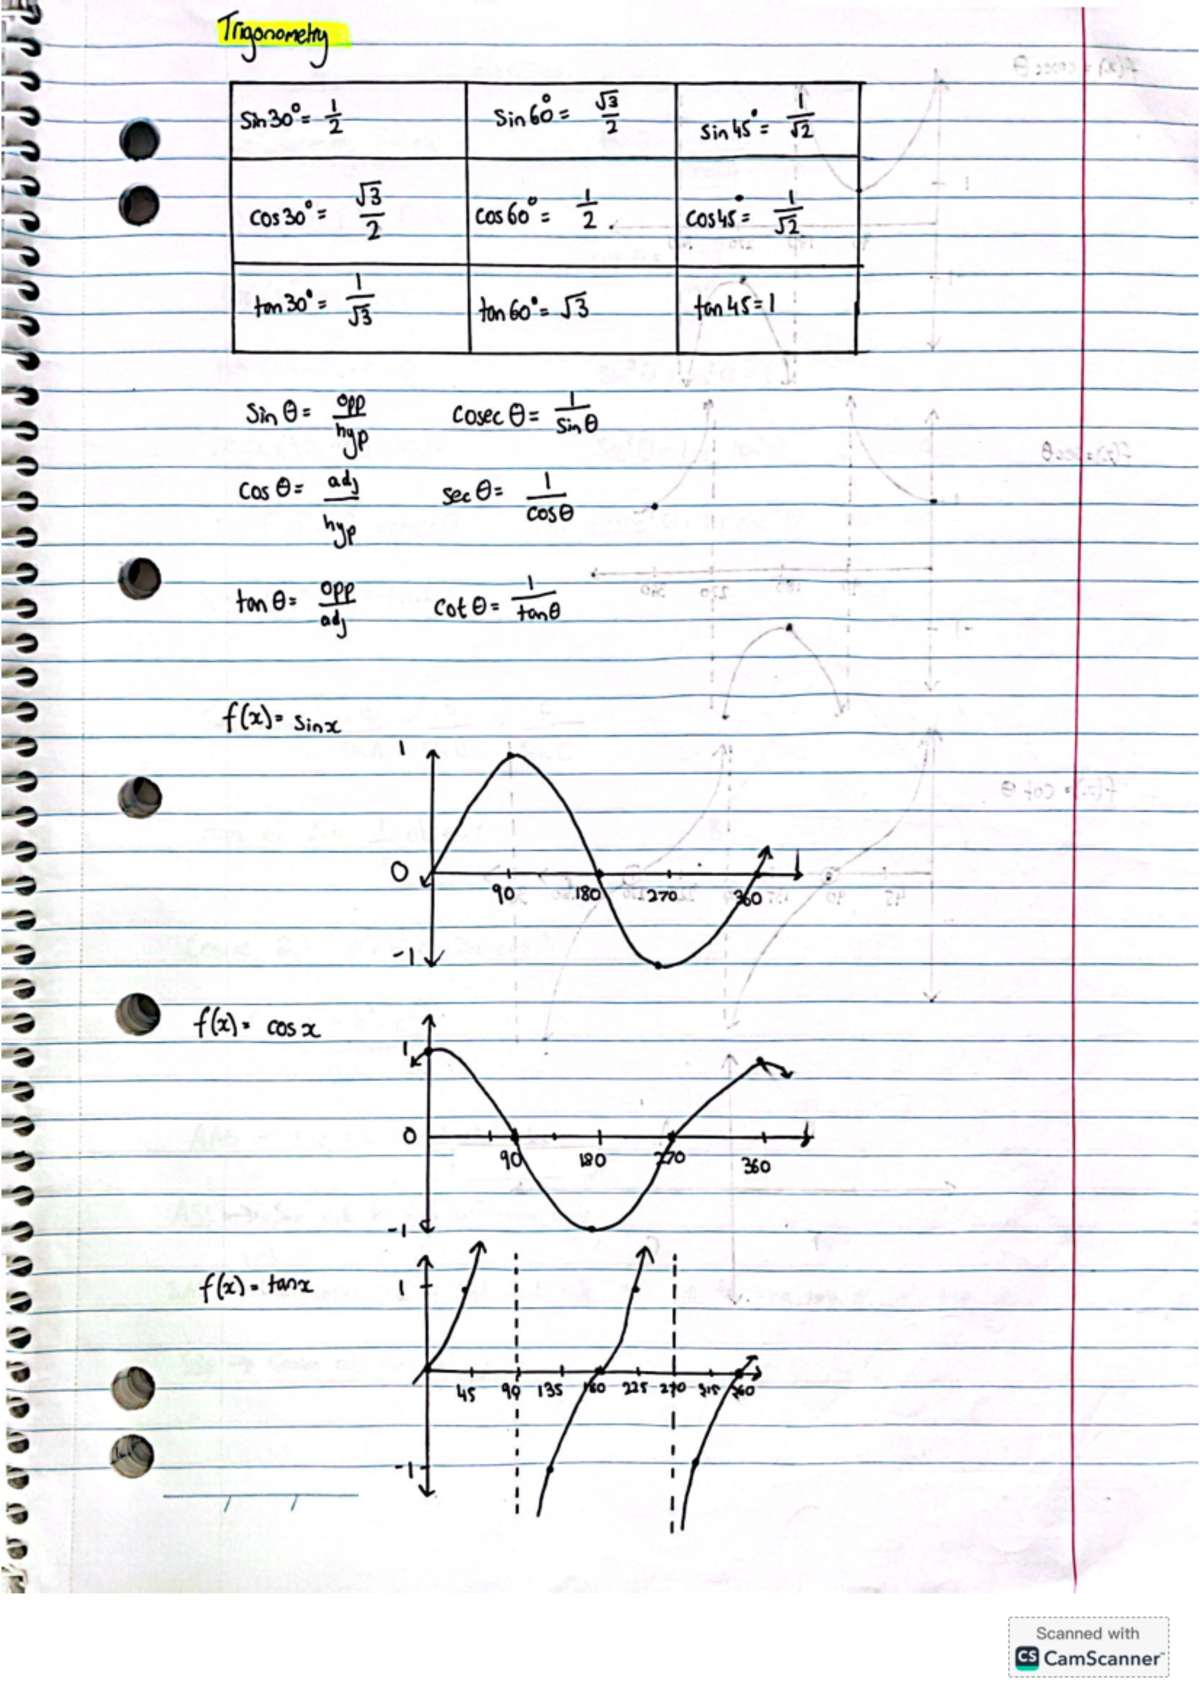 Trigonometry
sin30°= 1/2 sin60°= √3/2 sin45°= 1/√2
cos30°= √3/2 cos60°= 1/2. cos45°= 1/√2
tan30°= 1/√3 tan60°= √3 tan45=1
Sin θ= opp/hyp cosec θ= 1/sinθ
cos θ= adj/hyp sec θ= 1/cosθ
tan θ= opp/adj cot θ= 1/tanθ
f(x)= sinx
1
0 90 180 270 360
-1
f(x)= cosx
1
0 90 180 270 360
-1
f(x)=tanx
1
45 90 135 180 225 270 315 360
-1
Scanned with
CS CamScanner